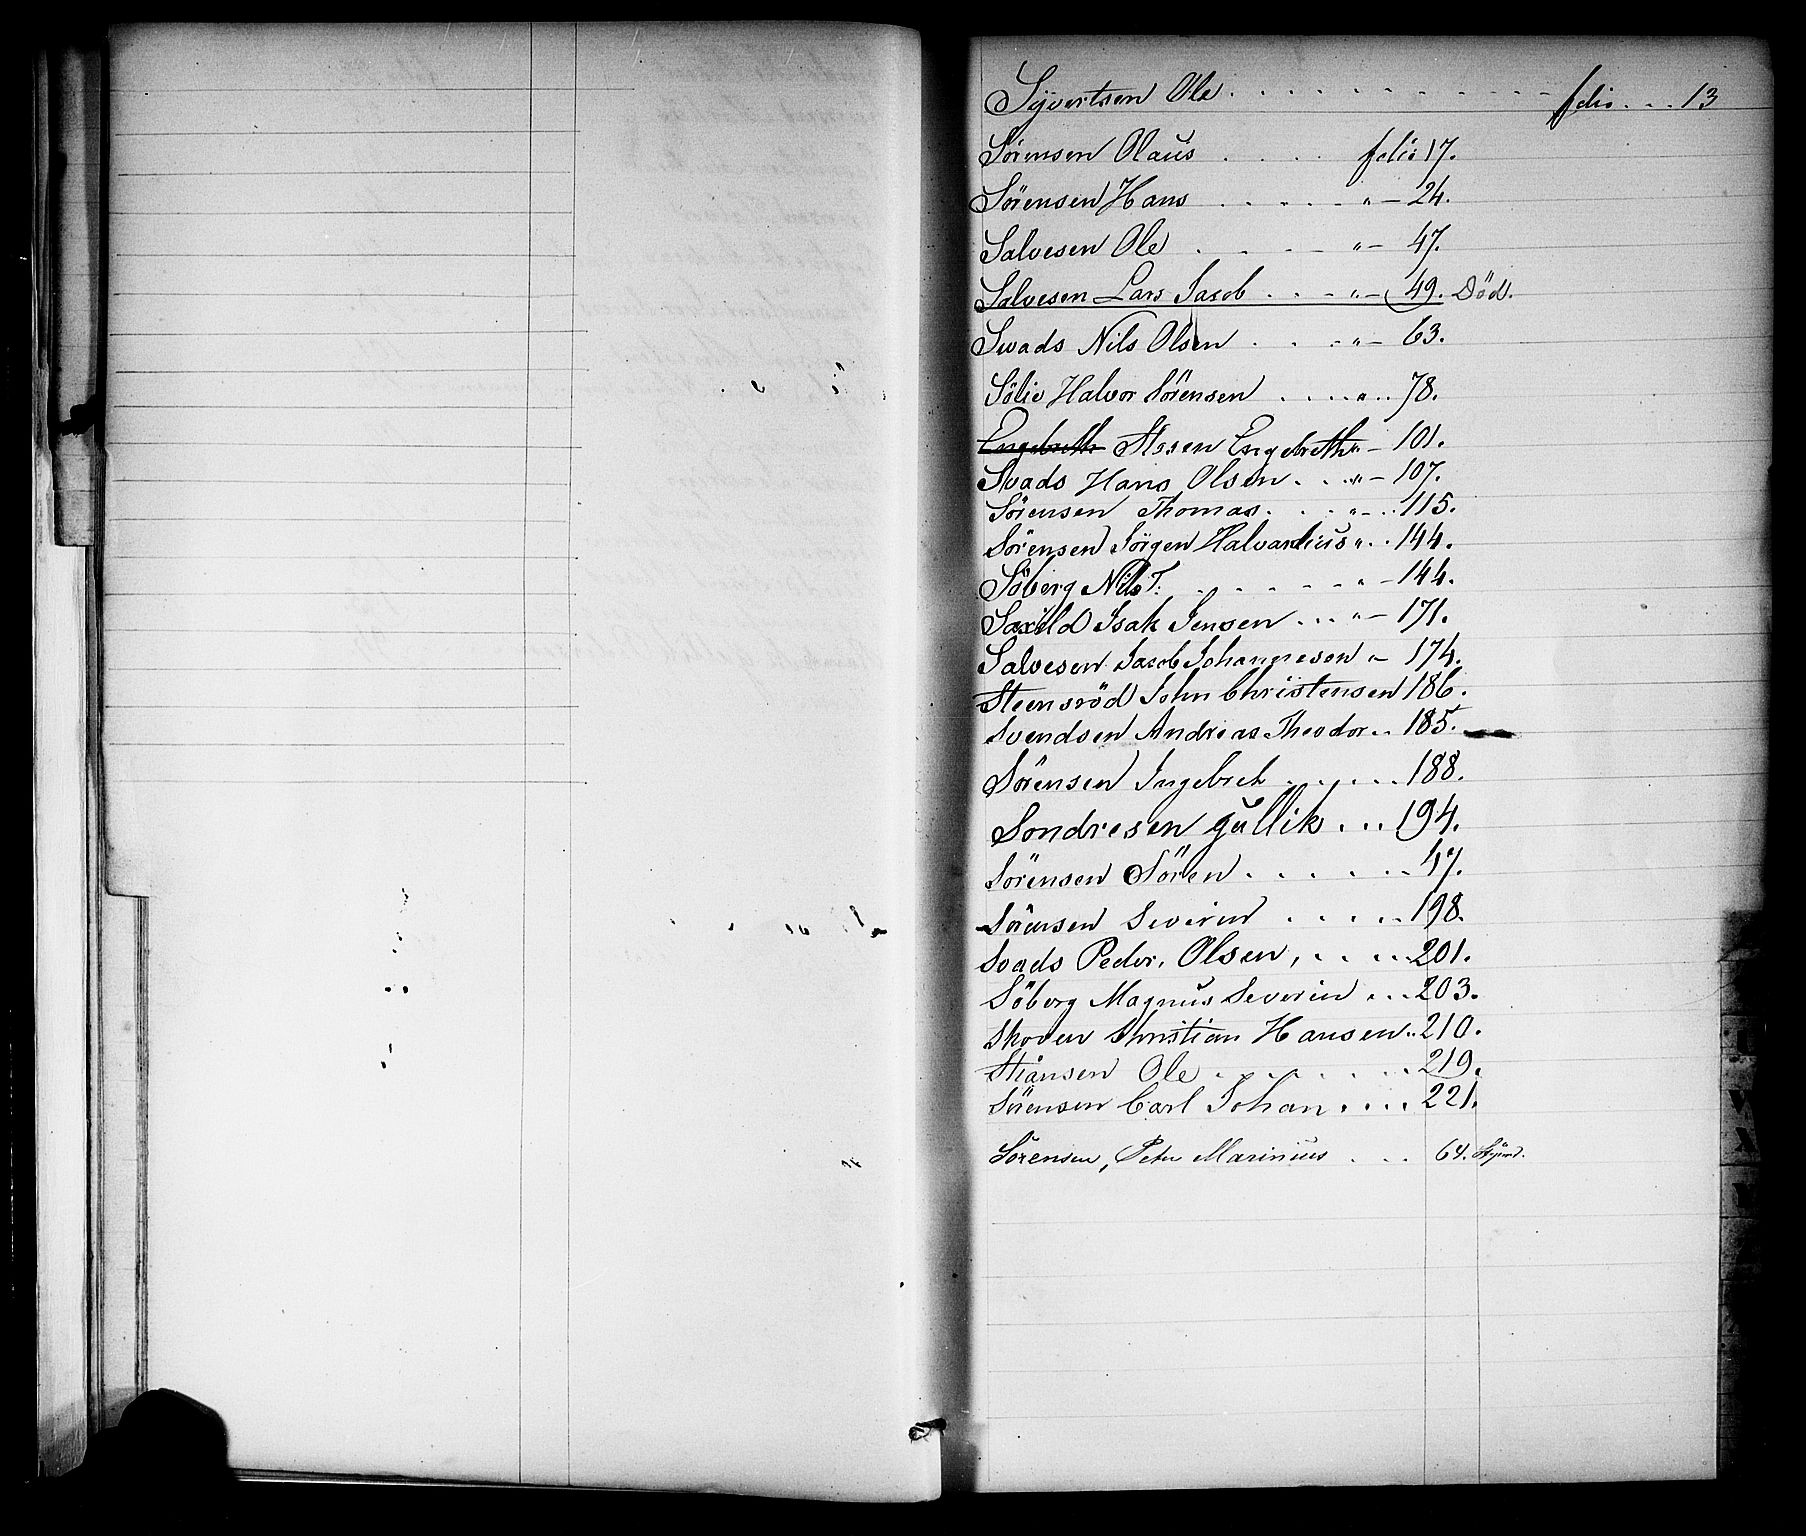 Syvertsen Ole . . . . . . . . . . . . folio . . . 13
Sörensen Olaus . . . . folio 17.
Sörensen Hans . . . . . " — 24.
Salvesen Ole . . . - " — 47.
Salvesen Lars Jacob . . - " — 49. Död.
Svads Nils Olsen . . . " — 63.
Sölie Halvor Sörensen . . . . " . . 78.
Engebreth Stesen Engebreth " — 101.
Svads Hans Olsen . . . " — 107.
Sörensen Thomas . . . " - . . 115.
Sörensen Jörgen Halvardius " . . 144.
Söberg Nils T: . . - - - - " — 144.
Saxild Isak Jensen . . . " — 171.
Salvesen Jacob Johannesen " — 174.
Steensröd John Christensen 186.
Svendsen Andreas Theodor . . 185.
Sörensen Ingebret . . . . . . 188.
Sondresen Gullik . . . 194.
Sörensen Sören . . . . . . 47.
Sörensen Severin . . . . . 198.
Svads Peder, Olsen, . . . . . 201.
Söberg Magnus Severin . . . 203.
Skoven Christian Hansen . . 210.
Stiansen Ole . . . . . . 219.
Sörensen Carl Johan . . . . 221.
Sörensen, Peter Marinius . . . 64.